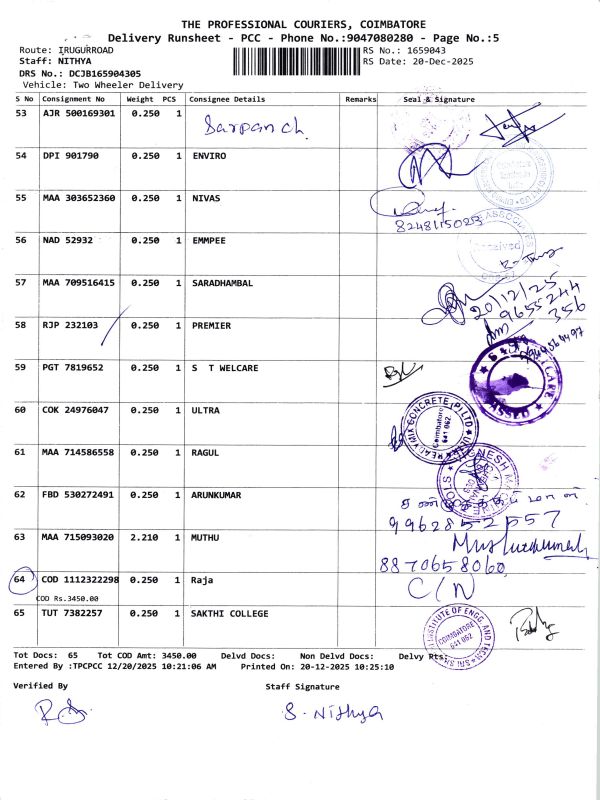 THE PROFESSIONAL COURIERS, COIMBATORE
Delivery Runsheet - PCC - Phone No.:9047080280 - Page No.:5
Route: IRUGURROAD RS No.: 1659043
Staff: NITHYA RS Date: 20-Dec-2025
DRS No.: DCJB165904305
Vehicle: Two Wheeler Delivery
S No Consignment No Weight PCS Consignee Details Remarks Seal & Signature
53 AJR 500169301 0.250 1 Sarpanch
54 DPI 901790 0.250 1 ENVIRO
55 MAA 303652360 0.250 1 NIVAS
8248115023
56 NAD 52932 0.250 1 EMMPEE
ASSOCIATES
Received
57 MAA 709516415 0.250 1 SARADHAMBAL
20/12/25
9655244
356
58 RJP 232103 0.250 1 PREMIER
59 PGT 7819652 0.250 1 S T WELCARE
60 COK 24976047 0.250 1 ULTRA
ULTRA READYMIX CONCRETE (P) LTD
Coimbatore
641 062
61 MAA 714586558 0.250 1 RAGUL
62 FBD 530272491 0.250 1 ARUNKUMAR
9962852557
63 MAA 715093020 2.210 1 MUTHU
Muthukumar
8870658060
64 COD 1112322298 0.250 1 Raja C/N
COD Rs.3450.00
65 TUT 7382257 0.250 1 SAKTHI COLLEGE
INSTITUTE OF ENGG. AND TECH
COIMBATORE
641 062
Tot Docs: 65 Tot COD Amt: 3450.00 Delvd Docs: Non Delvd Docs: Delvy Rts:
Entered By :TPCPCC 12/20/2025 10:21:06 AM Printed On: 20-12-2025 10:25:10
Verified By Staff Signature
S. Nithya